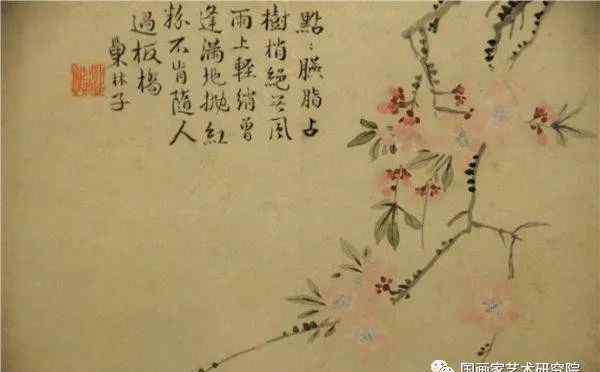 點〻臙脂占
樹梢絕無風
雨上輕綃曾
逢滿地拋紅
粉不肯隨人
過板橋
巢林子
国画家艺术研究院